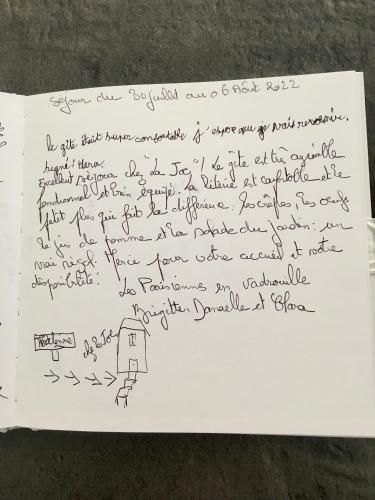 Séjour du 30 juillet au 06 Août 2022
le gîte était super confortable j'espère que je vais revenir.
signé: Clara.
Excellent séjour chez "La Joc"! Le gîte est très agréable
fonctionnel et bien équipé. La literie est confortable et le
petit plus qui fait la différence: les crêpes, les oeufs
le jus de pomme et la salade du jardin: un
vrai régal. Merci pour votre accueil et votre
disponibilité!
Les Parisiennes en vadrouille
Brigitte, Danaelle et Clara
chez La Joc